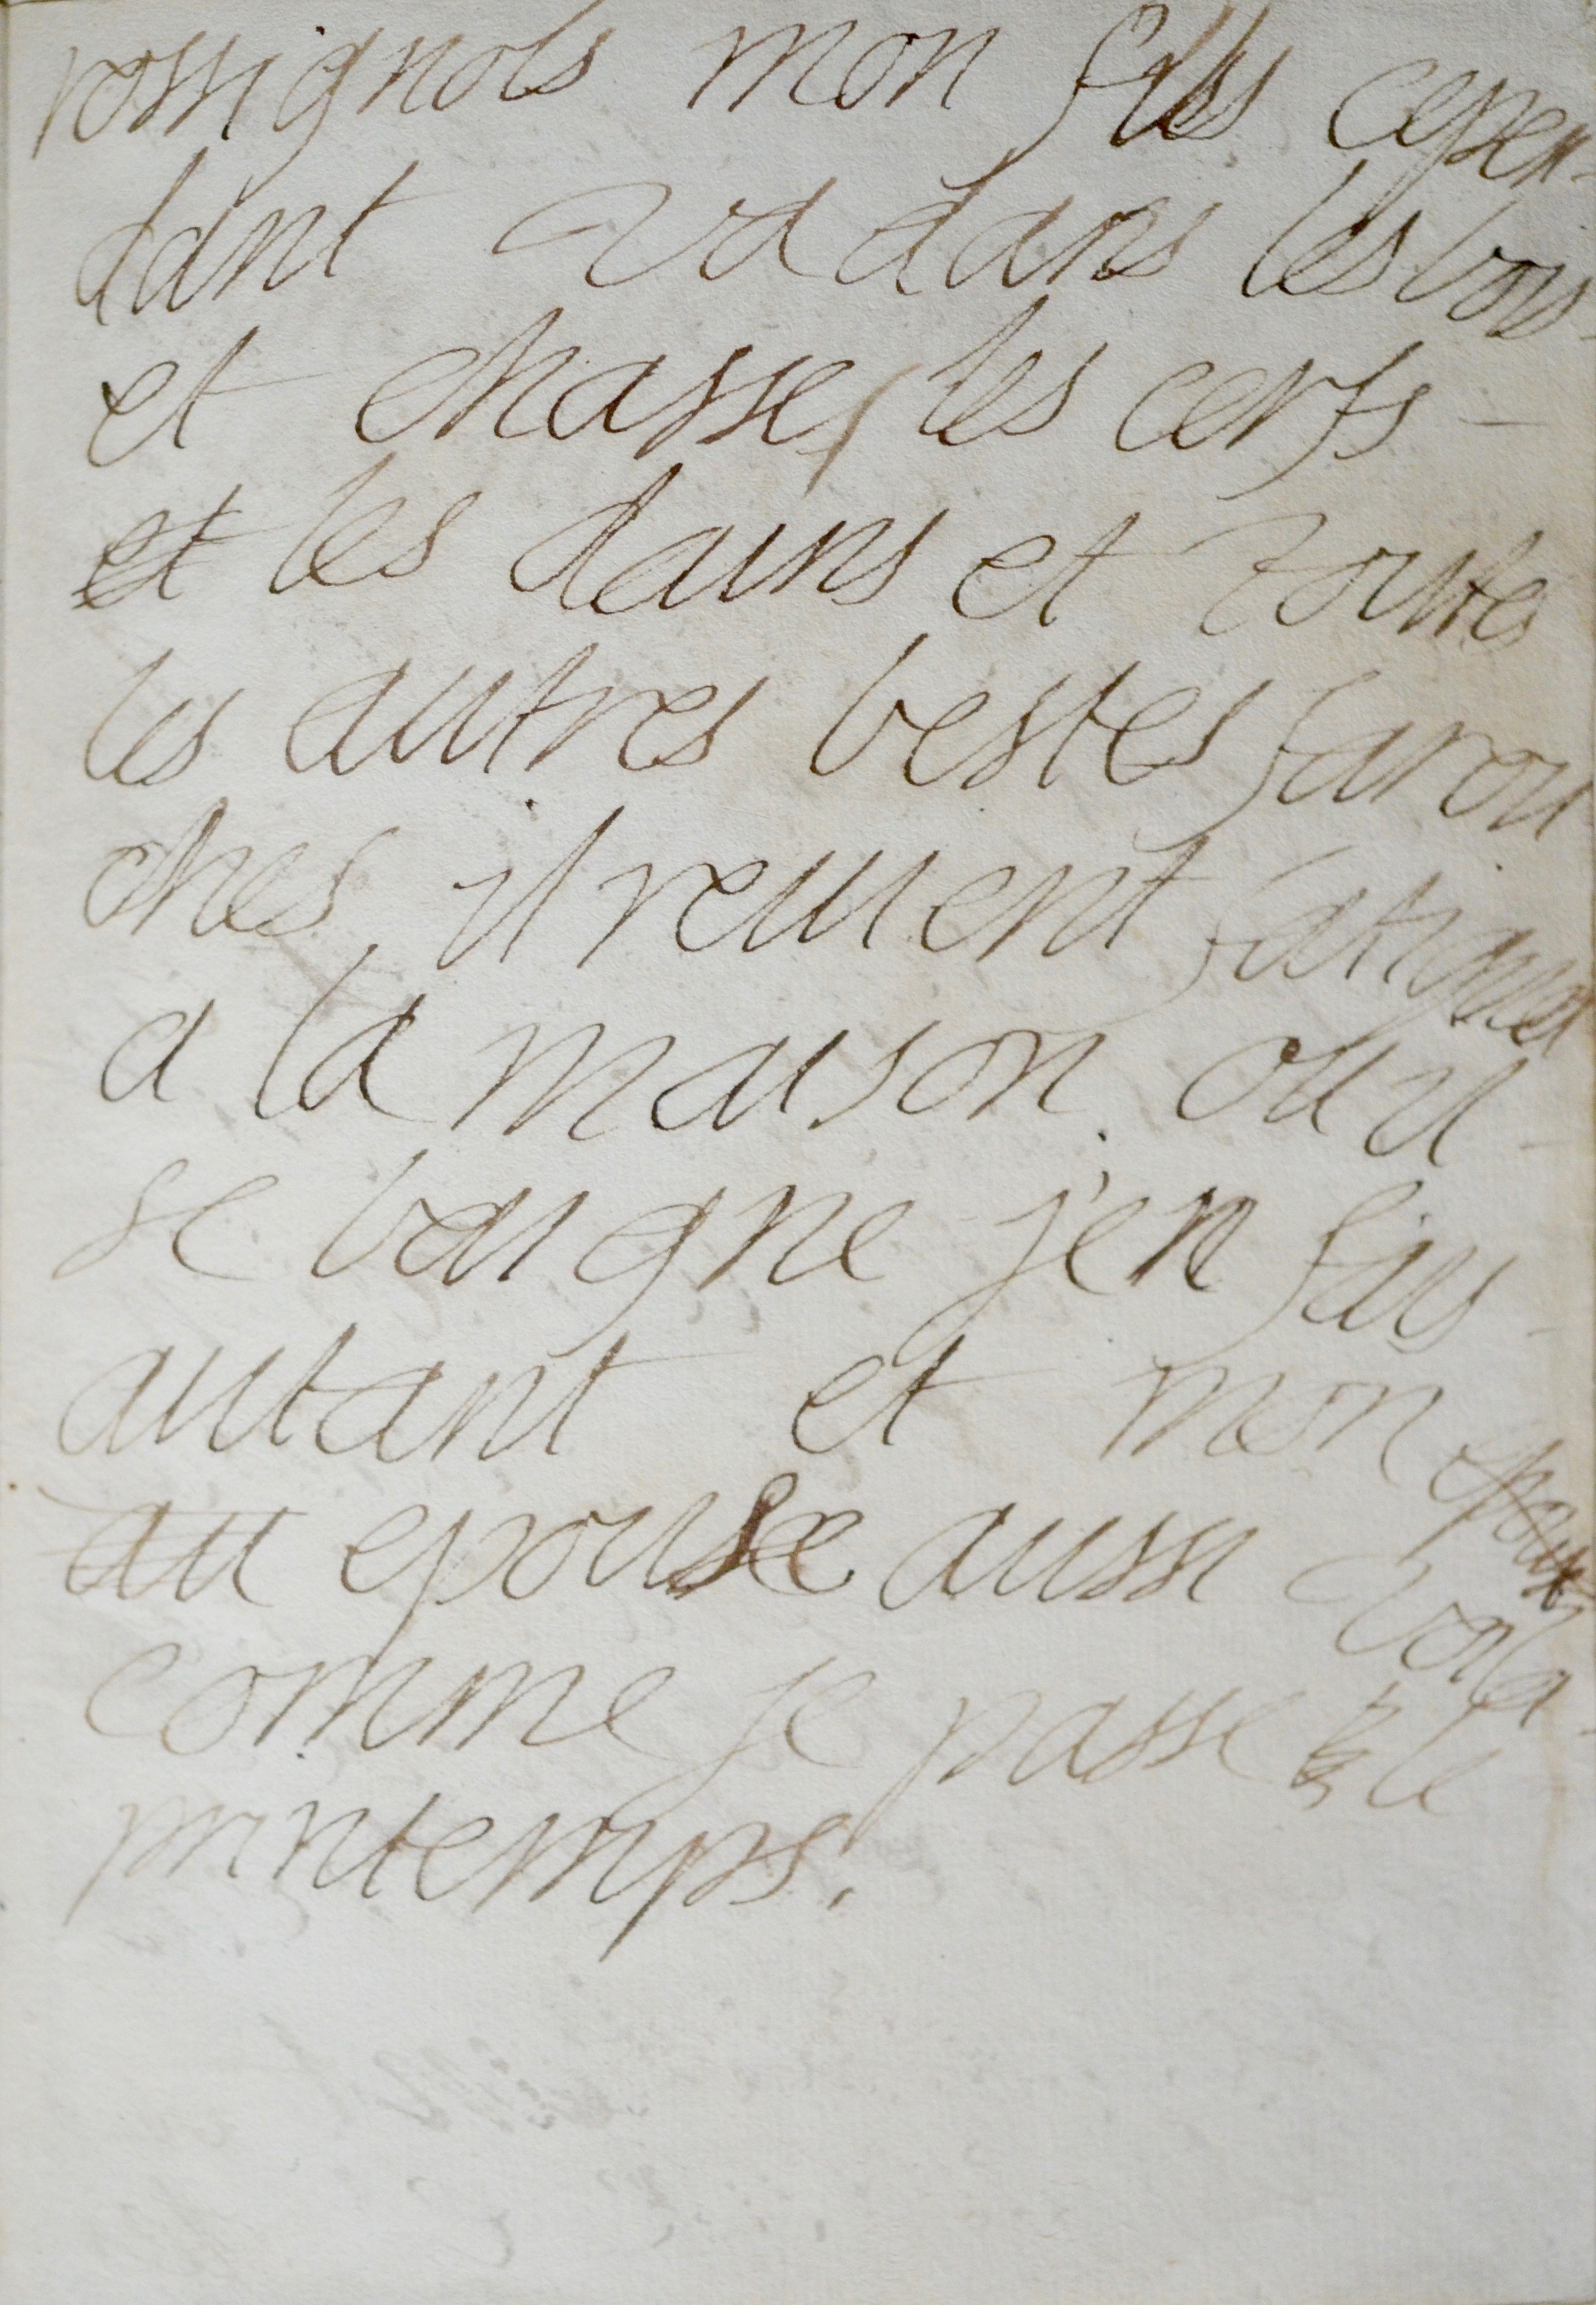 rossignols mon fils cepen-
dant va dans les bois
et chasse, les cerfs
et les dains et toutes
les autres bestes farou
ches, il revient fatigué
a la maison. ou il
se baigne j'en fais
autant et mon
epouse aussi voila
comme je passe le
printemps.